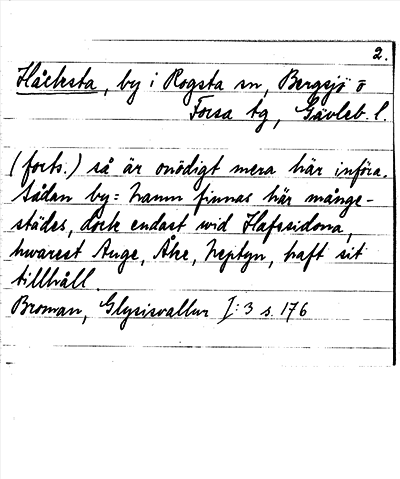 2.
Håcksta, by i Rogsta sn, Bergsjö o
Forsa tg, Gävleb. l.
(forts.) så är onödigt mera här införa.
Sådan by=namn finnas här månge-
städes, dock endast wid Hafssidona,
hwarest Auge, Åke, Neptyn, haft sit
tillhåll.
Broman, Glysisvallur I:3 s. 176